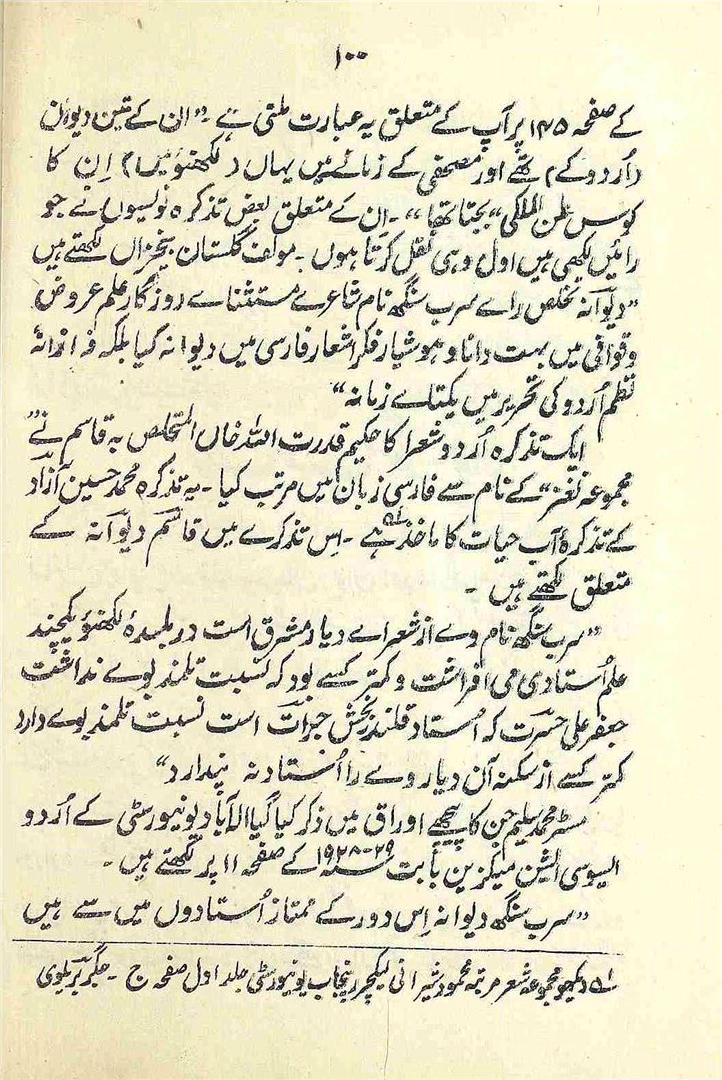 ۱۰۰
کے صفحہ ۱۴۵ پر آپ کے متعلق یہ عبارت ملتی ہے ۔ ”ان کے تین دیوان
(اُردو کے) تھے اور مصحفی کے زمانے میں یہاں (لکھنؤ میں) اِن کا
کوس لمن الملکی“ بجتا تھا“ ۔ اِن کے متعلق بعض تذکرہ نویسوں نے جو
رائیں لکھی ہیں اول وہی نقل کرتا ہوں ۔ مولف گلستان بیخزاں لکھتے ہیں
”دیوانہ تخلص راے سرب سنگھ نام شاعرے مستثناے روزگار علم عروض
و قوافی میں بہت دانا و ہوشیار فکر اشعار فارسی میں دیوانہ گیا بلکہ فرزانہ
نظم اُردو کی تحریر میں یکتاے زمانہ“
ایک تذکرہ اُردو شعرا کا حکیم قدرت اللہ خاں المتخلص بہ قاسم نے ”
مجموعہ نغز“ کے نام سے فارسی زبان میں مرتب کیا ۔ یہ تذکرہ محمد حسین آزاد
کے تذکرۂ آب حیات کا ماخذ ہے ۱؎ ۔ اِس تذکرے میں قاسم دیوانہ کے
متعلق لکھتے ہیں ۔
”سرب سنگھ نام وے از شعراے دیار مشرق است در بلدۂ لکھنؤ یکچند
علم اُستادی می افراشت و کمتر کسے بود کہ نسبت تلمذ بوے نداشت
جعفر علی حسرت کہ اُستاد قلندر بخش جرات است نسبت تلمذ بوے دارد
کمتر کسے از سکنہ آن دیار وے را اُستاد نہ پندارد“
مسٹر محمد سلیم جن کا پیچھے اوراق میں ذکر کیا گیا الہ آباد یونیورسٹی کے اُردو
ایسوسی ایشن میگزین بابت سنہ ۲۹-۱۹۲۸ کے صفحہ ۱۱ پر لکھتے ہیں ۔
”سرب سنگھ دیوانہ اِس دور کے ممتاز اُستادوں میں سے ہیں
۱؎ دیکھو مجموعہ شعر مرتبہ محمود شیرانی لیکچرر پنجاب یونیورسٹی جلد اول صفحہ ج ۔ جگر بریلوی